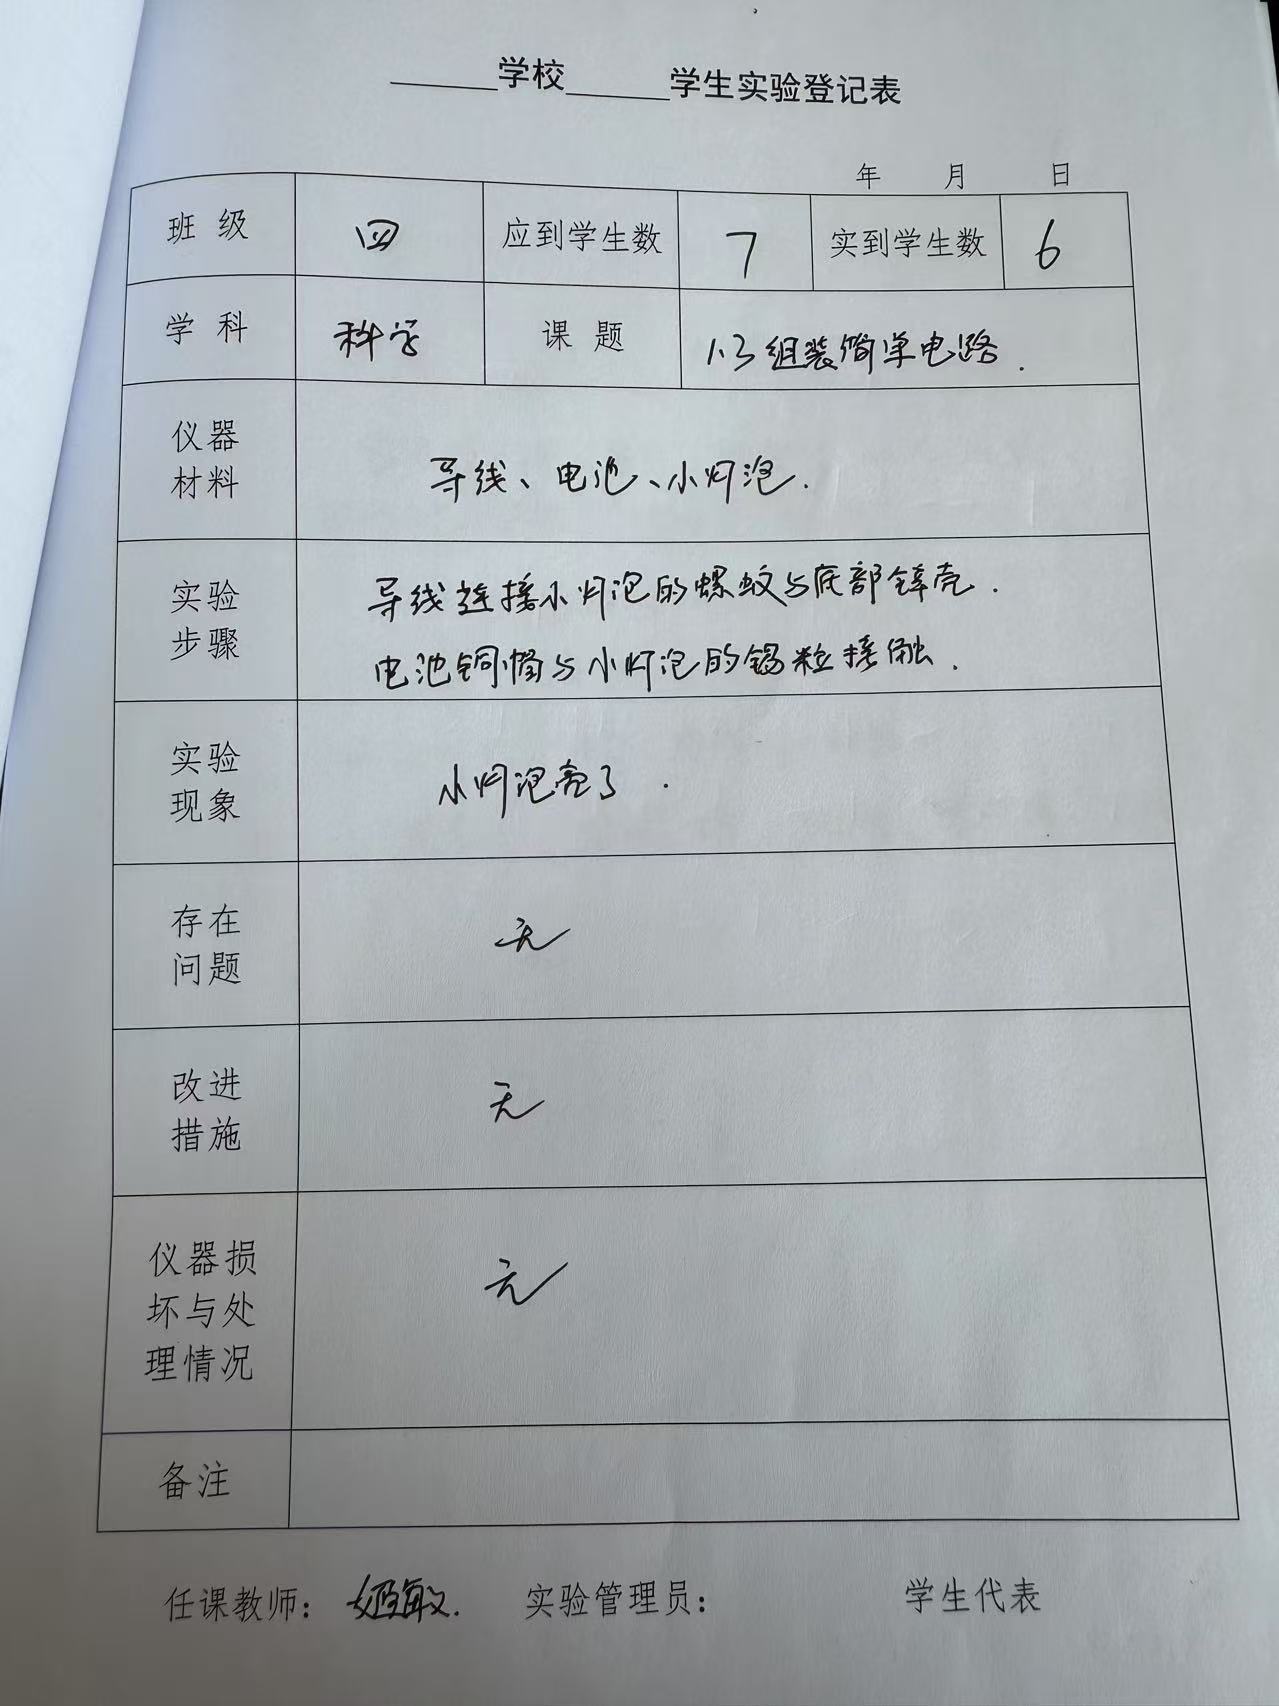 ______学校______学生实验登记表
年 月 日
班 级 四 应到学生数 7 实到学生数 6
学 科 科学 课 题 1.3组装简单电路.
仪器
材料
导线、电池、小灯泡.
实验
步骤
导线连接小灯泡的螺纹与底部锌壳.
电池铜帽与小灯泡的锡粒接触.
实验
现象
小灯泡亮了.
存在
问题
无
改进
措施
无
仪器损
坏与处
理情况
无
备注
任课教师: 敏 实验管理员: 学生代表